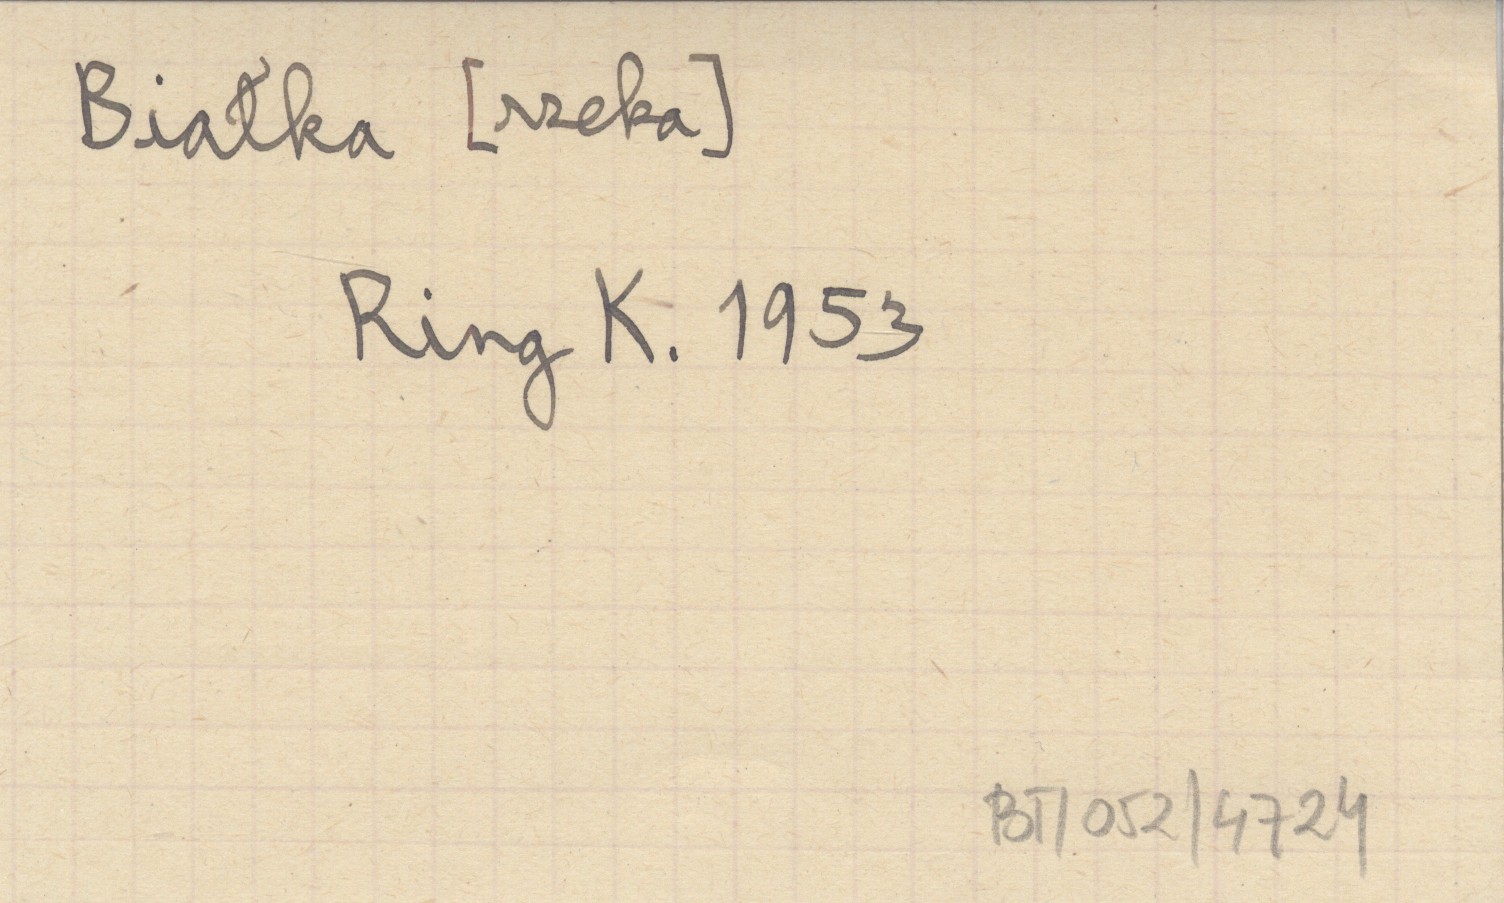 Białka [rzeka]
Ring K. 1953
BT/052/4724